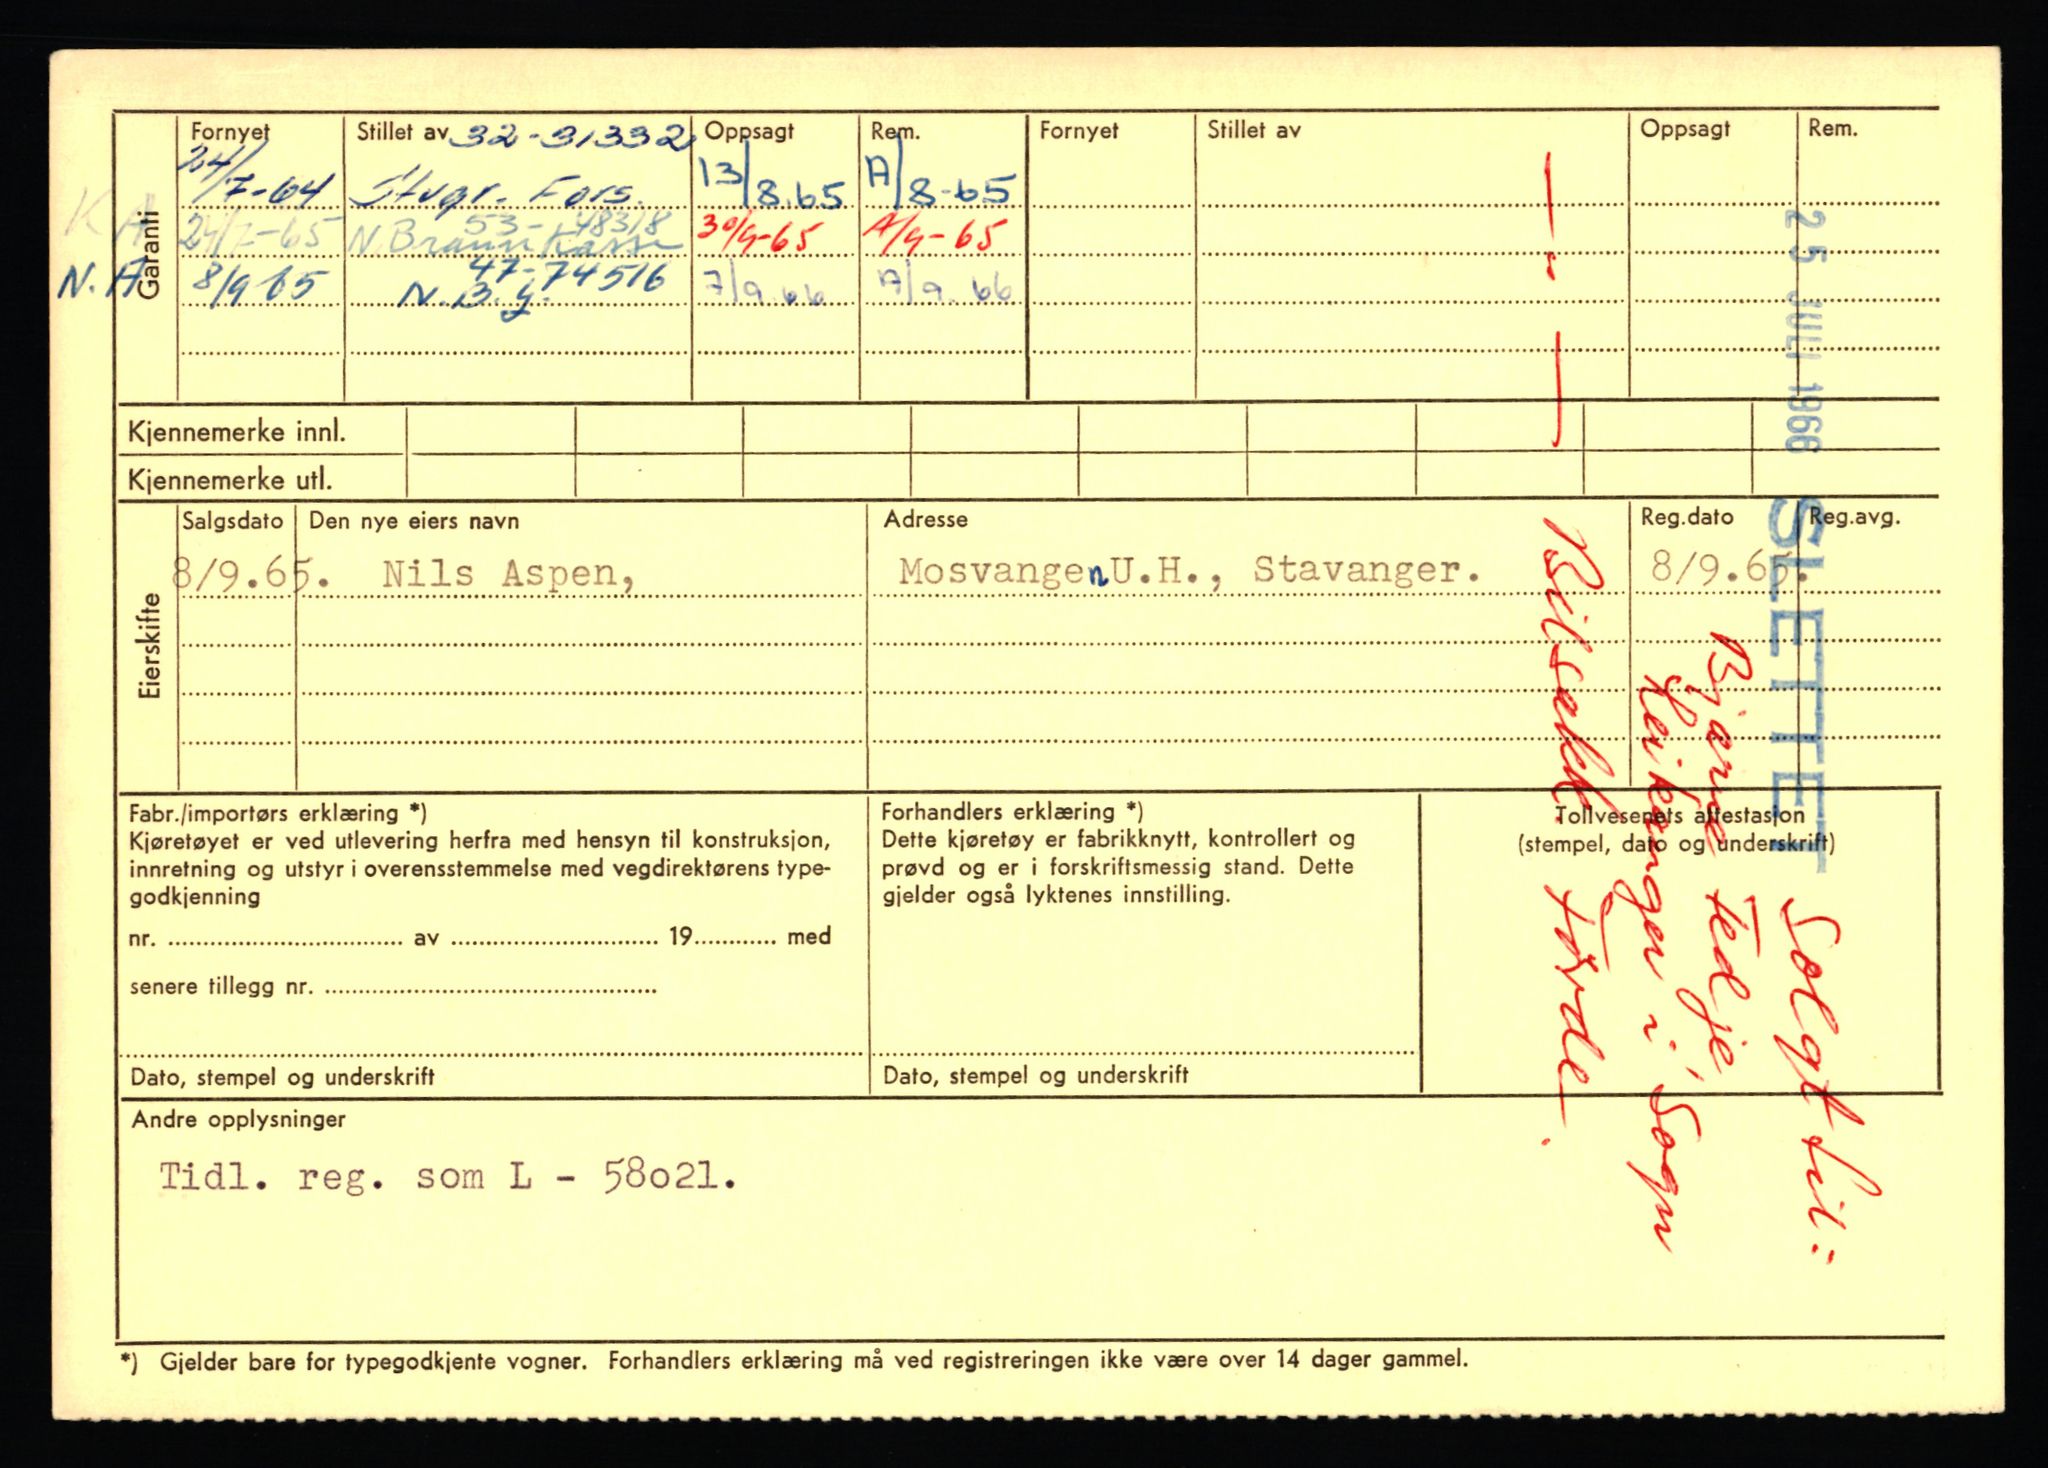 Garanti
Fornyet Stillet av 32-31332 Oppsagt Rem. Fornyet Stillet av Oppsagt Rem.
24/7-64 Stvgr. Fors. 13/8.65 A/8-65
K A 24/7-65 N. Brannkasse 53-48318 30/9-65 A/9-65
N.A 8/9 65 N.B.g. 47-74516 7/9.66 A/9.66
Kjennemerke innl.
Kjennemerke utl.
Eierskifte
Salgsdato Den nye eiers navn Adresse Reg.dato Reg.avg.
8/9.65. Nils Aspen, Mosvangen U.H., Stavanger. 8/9.65.
25 JULI 1966 SLETTET
Solgt til:
Bjarne Tedje,
Leikanger i Sogn
Bilsakk. Førde.
Fabr./importørs erklæring *)
Kjøretøyet er ved utlevering herfra med hensyn til konstruksjon,
innretning og utstyr i overensstemmelse med vegdirektørens type-
godkjenning
nr. ........ av ........ 19........ med
senere tillegg nr. ........
Dato, stempel og underskrift
Forhandlers erklæring *)
Dette kjøretøy er fabrikknytt, kontrollert og
prøvd og er i forskriftsmessig stand. Dette
gjelder også lyktenes innstilling.
Dato, stempel og underskrift
Tollvesenets attestasjon
(stempel, dato og underskrift)
Andre opplysninger
Tidl. reg. som L - 58021.
*) Gjelder bare for typegodkjente vogner. Forhandlers erklæring må ved registreringen ikke være over 14 dager gammel.